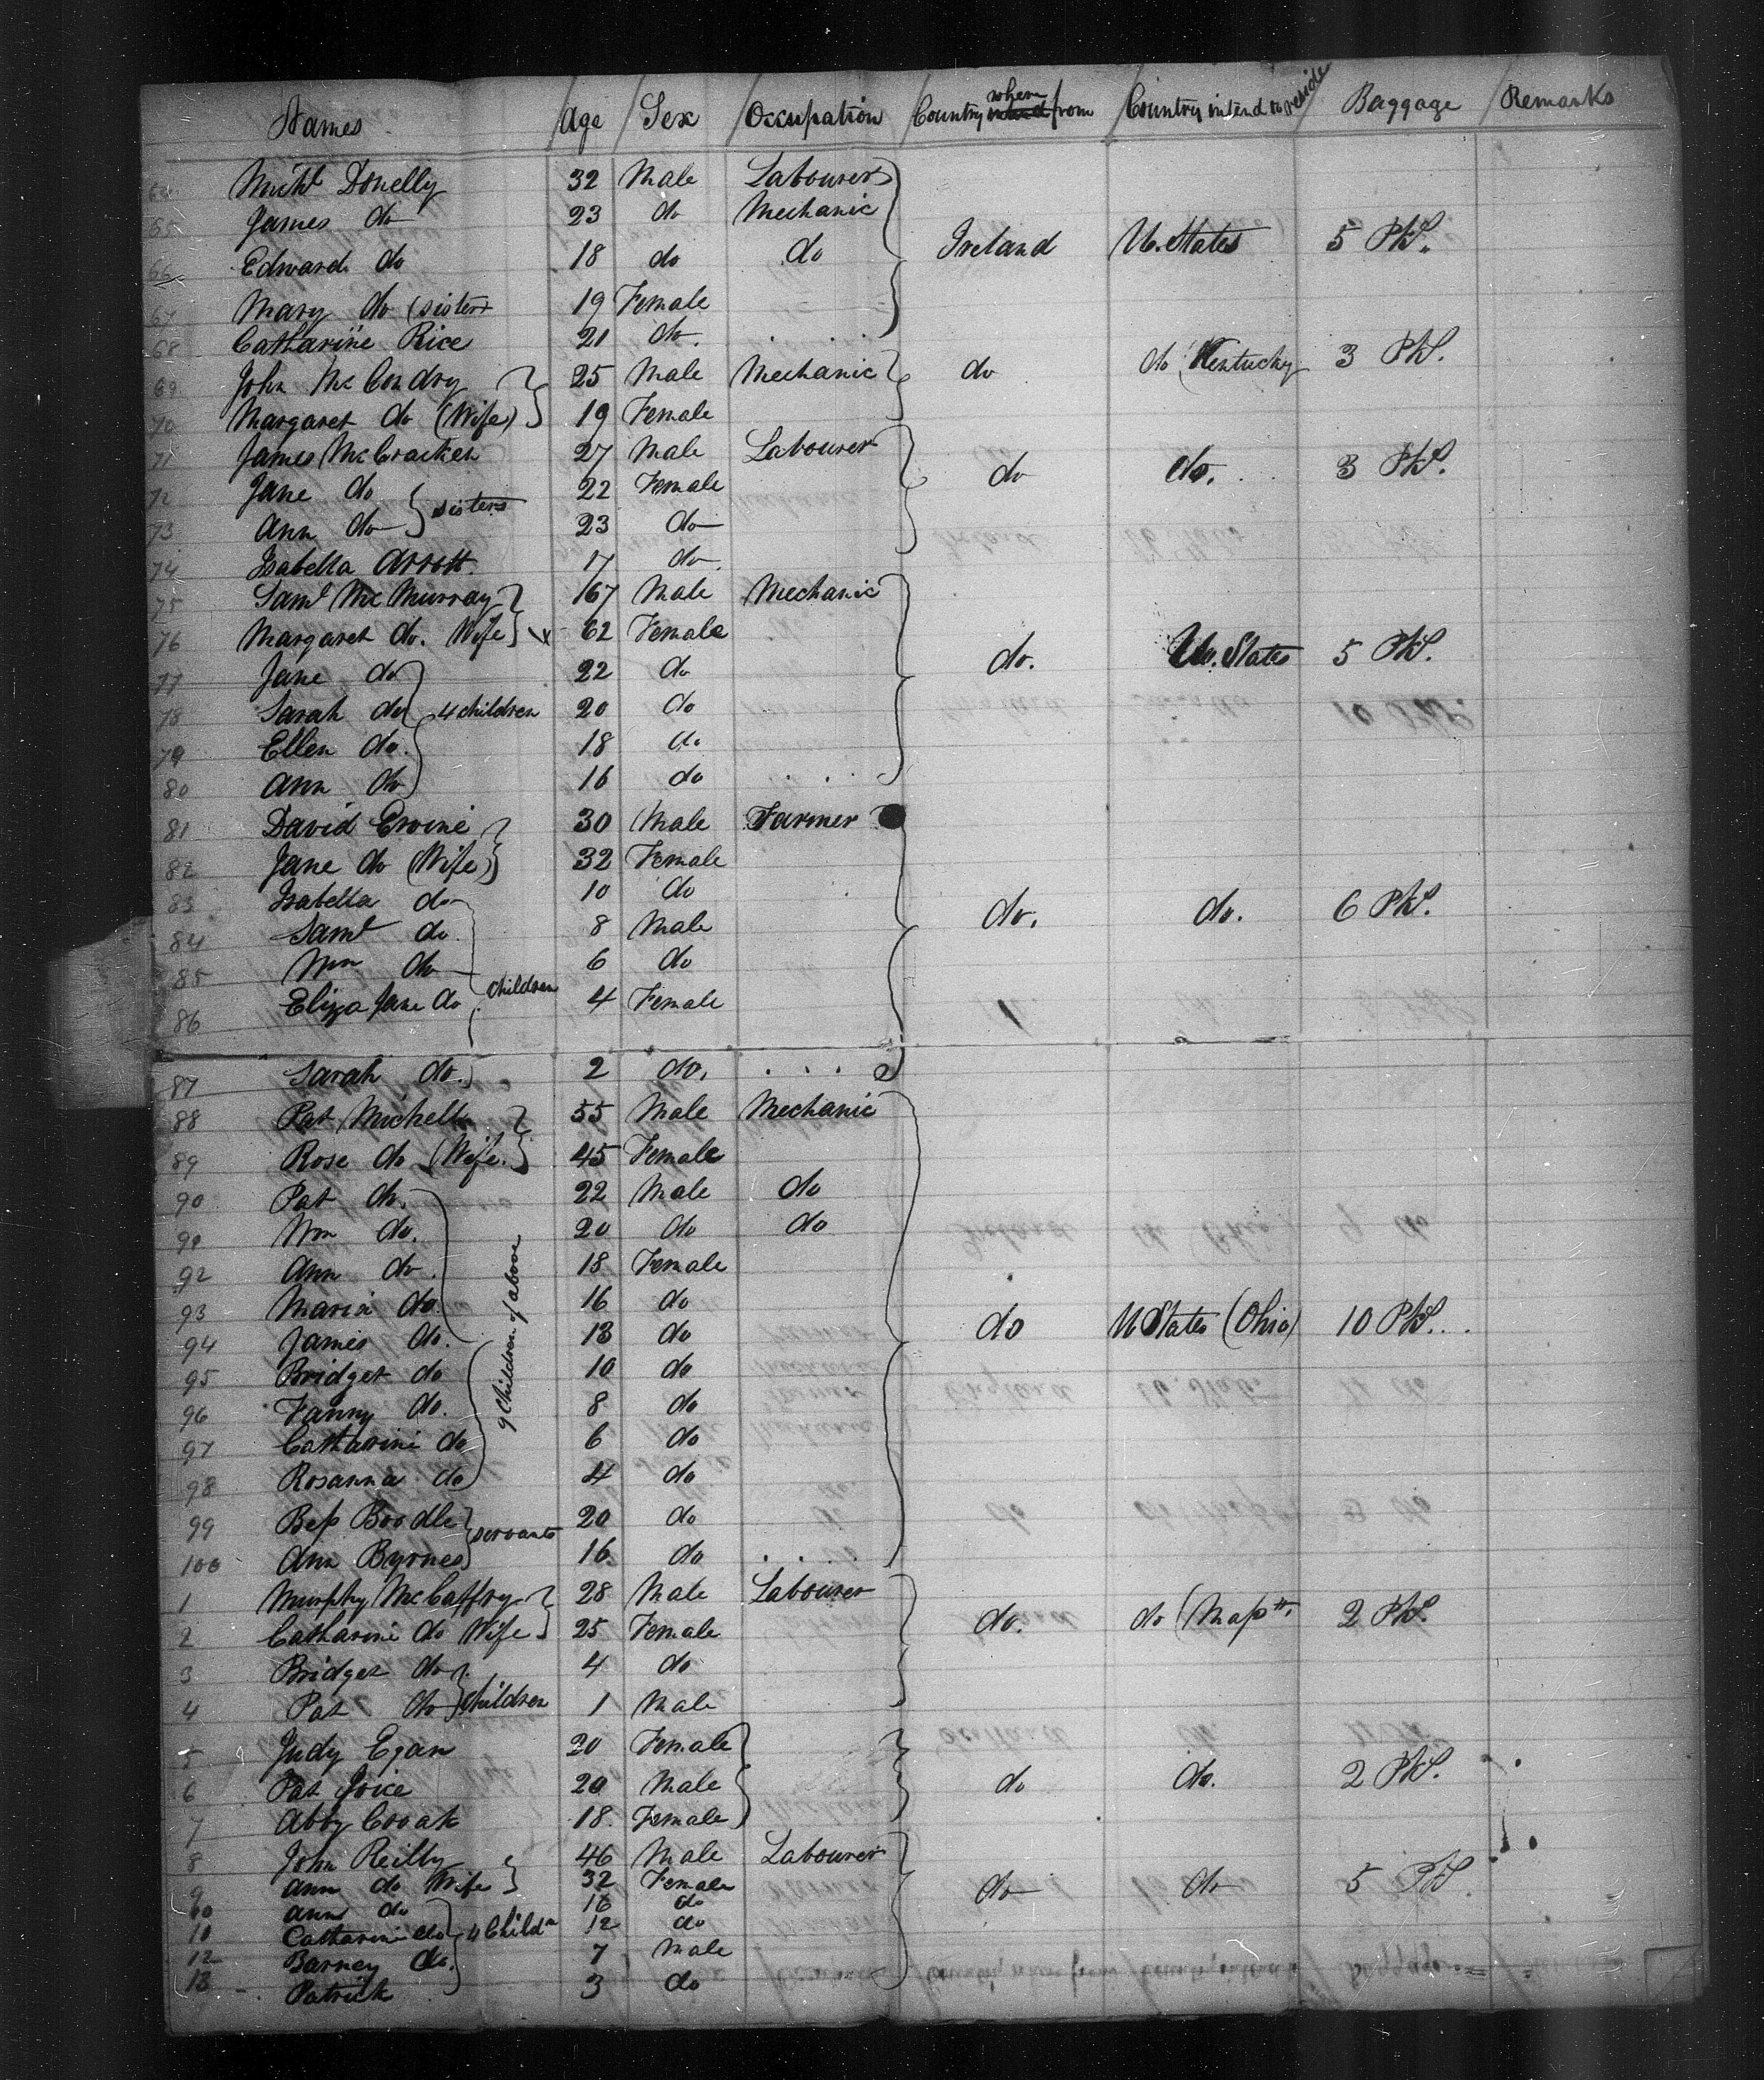 Names Age Sex Occupation Country where from Country intend to reside Baggage Remarks
64 Michl Donelly 32 Male Labourer
65 James do 23 do Mechanic
66 Edward do 18 do do Ireland U. States 5 Pks.
67 Mary do (sister) 19 Female
68 Catharine Rice 21 do.
69 John McCondry 25 Male Mechanic do do (Kentucky 3 Pks.
70 Margaret do (Wife) 19 Female
71 James McCracken 27 Male Labourer
72 Jane do 22 Female do do. 3 Pks.
sisters
73 Ann do 23 do
74 Isabella Arrott. 17 do.
75 Saml McMurray 67 Male Mechanic
76 Margaret do. Wife 62 Female
77 Jane do 22 do do. U. States 5 Pks.
78 Sarah do 4 children 20 do
79 Ellen do. 18 do
80 Ann do 16 do
81 David Ervine 30 Male Farmer
82 Jane do (Wife) 32 Female
83 Isabella do 10 do
84 Saml do. 8 Male do. do. 6 Pks.
85 Wm do 6 do
children
86 Eliza Jane do 4 Female
87 Sarah do. 2 do.
88 Pat Michell 55 Male Mechanic
89 Rose do (Wife. 45 Female
90 Pat do. 22 Male do
91 Wm do. 20 do do
92 Ann do 18 Female
93 Maria do. 16 do
94 James do. 13 do do U States (Ohio) 10 Pks.
9 Children of above
95 Bridget do 10 do
96 Fanny do. 8 do
97 Catharine do 6 do
98 Rosanna do 4 do
99 Bess Boodle 20 do
servants
100 Ann Byrnes 16. do
1 Murphy McCaffry 28 Male Labourer
2 Catharine do Wife 25 Female do. do (Masstts. 2 Pks.
3 Bridget do 4 do
children
4 Pat do 1 Male
5 Judy Egan 20 Female
6 Pat Joice 20 Male do do. 2 Pks.
7 Abby Croak 18. Female
8 John Reilly 46 Male Labourer
9 Ann do Wife 32 Female do do 5 Pks.
10 Ann do 16 do
11 Catharine do 4 Childn 12 do
12 Barney do. 7 Male
13 Patrick 3 do